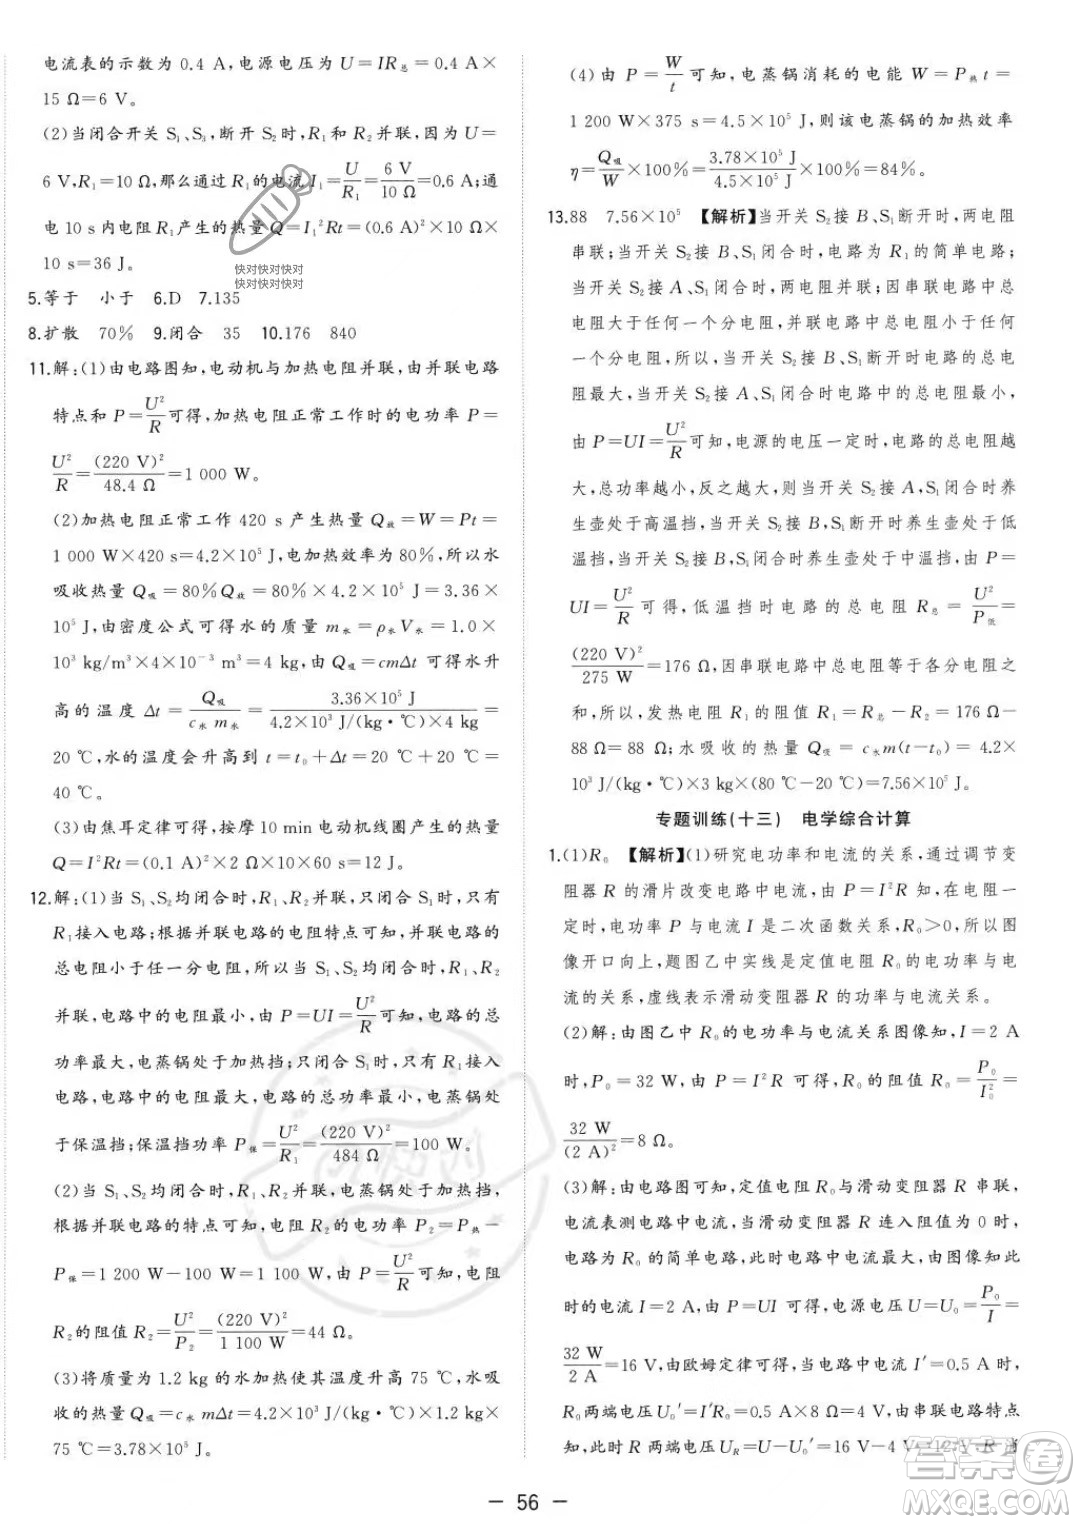 电流表的示数为 0.4 A,电源电压为 U=IR总=0.4 A×
15 Ω=6 V。
(2)当闭合开关 S₁、S₃,断开 S₂ 时,R₁ 和 R₂ 并联,因为 U=
6 V,R₁=10 Ω,那么通过 R₁ 的电流 I₁=U/R₁=6 V/10 Ω=0.6 A;通
电 10 s 内电阻 R₁ 产生的热量 Q=I₁²Rt=(0.6 A)²×10 Ω×
10 s=36 J。
快对快对快对
快对快对快对
5.等于 小于 6.D 7.135
8.扩散 70% 9.闭合 35 10.176 840
11.解:(1)由电路图知,电动机与加热电阻并联,由并联电路
特点和 P=U²/R可得,加热电阻正常工作时的电功率 P=
U²/R=(220 V)²/48.4 Ω=1 000 W。
(2)加热电阻正常工作 420 s 产生热量 Q放=W=Pt=
1 000 W×420 s=4.2×10⁵ J,加热效率为 80%,所以水
吸收热量 Q吸=80%Q放=80%×4.2×10⁵ J=3.36×
10⁵ J,由密度公式可得水的质量 m水=ρ水V水=1.0×
10³ kg/m³×4×10⁻³ m³=4 kg,由 Q吸=cmΔt 可得水升
高的温度 Δt=Q吸/c水m水=3.36×10⁵ J/4.2×10³ J/(kg·℃)×4 kg=
20 ℃,水的温度会升高到 t=t₀+Δt=20 ℃+20 ℃=
40 ℃。
(3)由焦耳定律可得,按摩 10 min 电动机线圈产生的热量
Q=I²Rt=(0.1 A)²×2 Ω×10×60 s=12 J。
12.解:(1)当 S₁、S₂均闭合时,R₁、R₂并联,只闭合 S₁时,只有
R₁接入电路;根据并联电路的电阻特点可知,并联电路的
总电阻小于任一分电阻,所以当 S₁、S₂ 均闭合时,R₁、R₂
并联,电路中的电阻最小,由 P=UI=U²/R可知,电路的总
功率最大,电蒸锅处于加热挡;只闭合 S₁时,只有 R₁接入
电路,电路中的电阻最大,电路的总功率最小,电蒸锅处
于保温挡;保温挡功率 P保=U²/R₁=(220 V)²/484 Ω=100 W。
(2)当 S₁、S₂ 均闭合时,R₁、R₂ 并联,电蒸锅处于加热挡,
根据并联电路的特点可知,电阻 R₂ 的电功率 P₂=P热-
P保=1 200 W-100 W=1 100 W,由 P=U²/R可知,电阻
R₂的阻值 R₂=U²/P₂=(220 V)²/1 100 W=44 Ω。
(3)将质量为 1.2 kg 的水加热使其温度升高 75 ℃,水吸
收的热量 Q吸=c水mΔt=4.2×10³ J/(kg·℃)×1.2 kg×
75 ℃=3.78×10⁵ J。
(4)由 P=W/t可知,电蒸锅消耗的电能 W=P热t=
1 200 W×375 s=4.5×10⁵ J,则该电蒸锅的加热效率
η=Q吸/W×100%=3.78×10⁵ J/4.5×10⁵ J×100%=84%。
13.88 7.56×10⁵ 【解析】当开关 S₂接 B、S₁断开时,两电阻
串联;当开关 S₂接 B、S₁闭合时,电路为 R₁的简单电路;
当开关 S₂接 A、S₁闭合时,两电阻并联;因串联电路中总
电阻大于任何一个分电阻,并联电路中总电阻小于任何
一个分电阻,所以,当开关 S₂接 B、S₁断开时电路的总电
阻最大,当开关 S₂接 A、S₁闭合时电路的总电阻最小,
由 P=UI=U²/R可知,电源的电压一定时,电路的总电阻越
大,总功率越小,反之越大,则当开关 S₂接 A、S₁闭合时养
生壶处于高温挡,当开关 S₂接 B、S₁断开时养生壶处于低
温挡,当开关 S₂接 B、S₁闭合时养生壶处于中温挡,由 P=
UI=U²/R可得,低温挡时电路的总电阻 R总=U²/P低=
(220 V)²/275 W=176 Ω,因串联电路中总电阻等于各分电阻之
和,所以,发热电阻 R₁的阻值 R₁=R总-R₂=176 Ω-
88 Ω=88 Ω;水吸收的热量 Q吸=c水m(t-t₀)=4.2×
10³ J/(kg·℃)×3 kg×(80 ℃-20 ℃)=7.56×10⁵ J。
专题训练(十三) 电学综合计算
1.(1)R₀ 【解析】(1)研究电功率和电流的关系,通过调节变
阻器 R 的滑片改变电路中电流,由 P=I²R 知,在电阻一
定时,电功率 P 与电流 I 是二次函数关系,R₀>0,所以图
像开口向上,题图乙中实线是定值电阻 R₀的电功率与电
流的关系,虚线表示滑动变阻器 R 的功率与电流的关系。
(2)解:由图乙中 R₀的电功率与电流关系图像知,I=2 A
时,P₀=32 W,由 P=I²R 可得,R₀ 的阻值 R₀=P₀/I₀²=
32 W/(2 A)²=8 Ω。
(3)解:由电路图可知,定值电阻 R₀与滑动变阻器 R 串联,
电流表测电路中电流,当滑动变阻器 R 连入阻值为 0 时,
电路为 R₀的简单电路,此时电路中电流最大,由图像知此
时的电流 I=2 A,由 P=UI 可得,电源电压 U=U₀=P₀/I=
32 W/2 A=16 V,由欧姆定律可得,当电路中电流 I′=0.5 A时,
R₀两端电压 U₀′=I′R₀=0.5 A×8 Ω=4 V,由串联电路特
点可知此时 R 两端电压 U_R=U-U₀′=16 V-4 V=12 V,R 消
— 56 —
答案圈
MXQE.COM